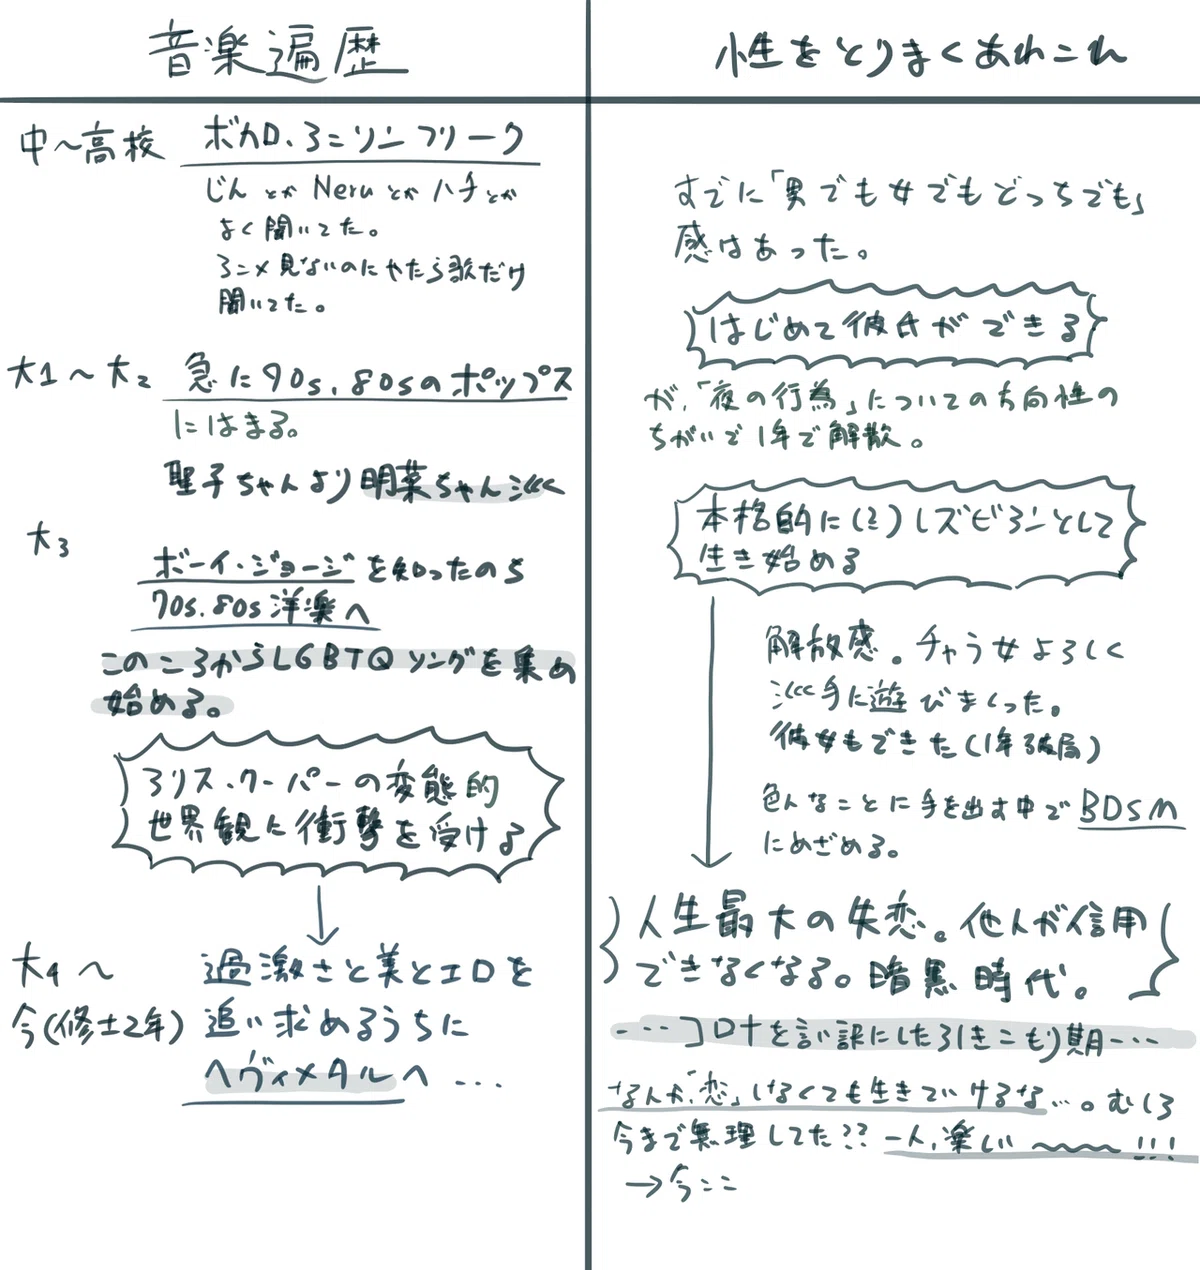 音楽遍歴
中〜高校 ボカロ、アニソンフリーク
じんとかNeruとかハチとか
よく聞いてた。
アニメ見ないのにやたら歌だけ
聞いてた。
大1〜大2 急に90s,80sのポップス
にはまる。
聖子ちゃんより明菜ちゃん派
大3
ボーイ・ジョージを知ったのち
70s,80s洋楽へ
このころからLGBTQソングを集め
始める。
アリス・クーパーの変態的
世界観に衝撃を受ける
大4〜 過激さと美とエロを
今(修士2年) 追い求めるうちに
ヘヴィメタルへ…
性をとりまくあれこれ
すでに「男でも女でもどっちでも」
感はあった。
はじめて彼氏ができる
が、「夜の行為」についての方向性の
ちがいで1年で解散。
本格的に(?)レズビアンとして
生き始める
解放感。チャラ女よろしく
派手に遊びまくった。
彼女もできた(1年で破局)
色んなことに手を出す中でBDSM
にめざめる。
人生最大の失恋。他人が信用
できなくなる。暗黒時代。
…コロナを言い訳にした引きこもり期…
なんか、「恋」しなくても生きていけるな…。むしろ
今まで無理してた?? 一人、楽しい〜〜!!!
→今ここ